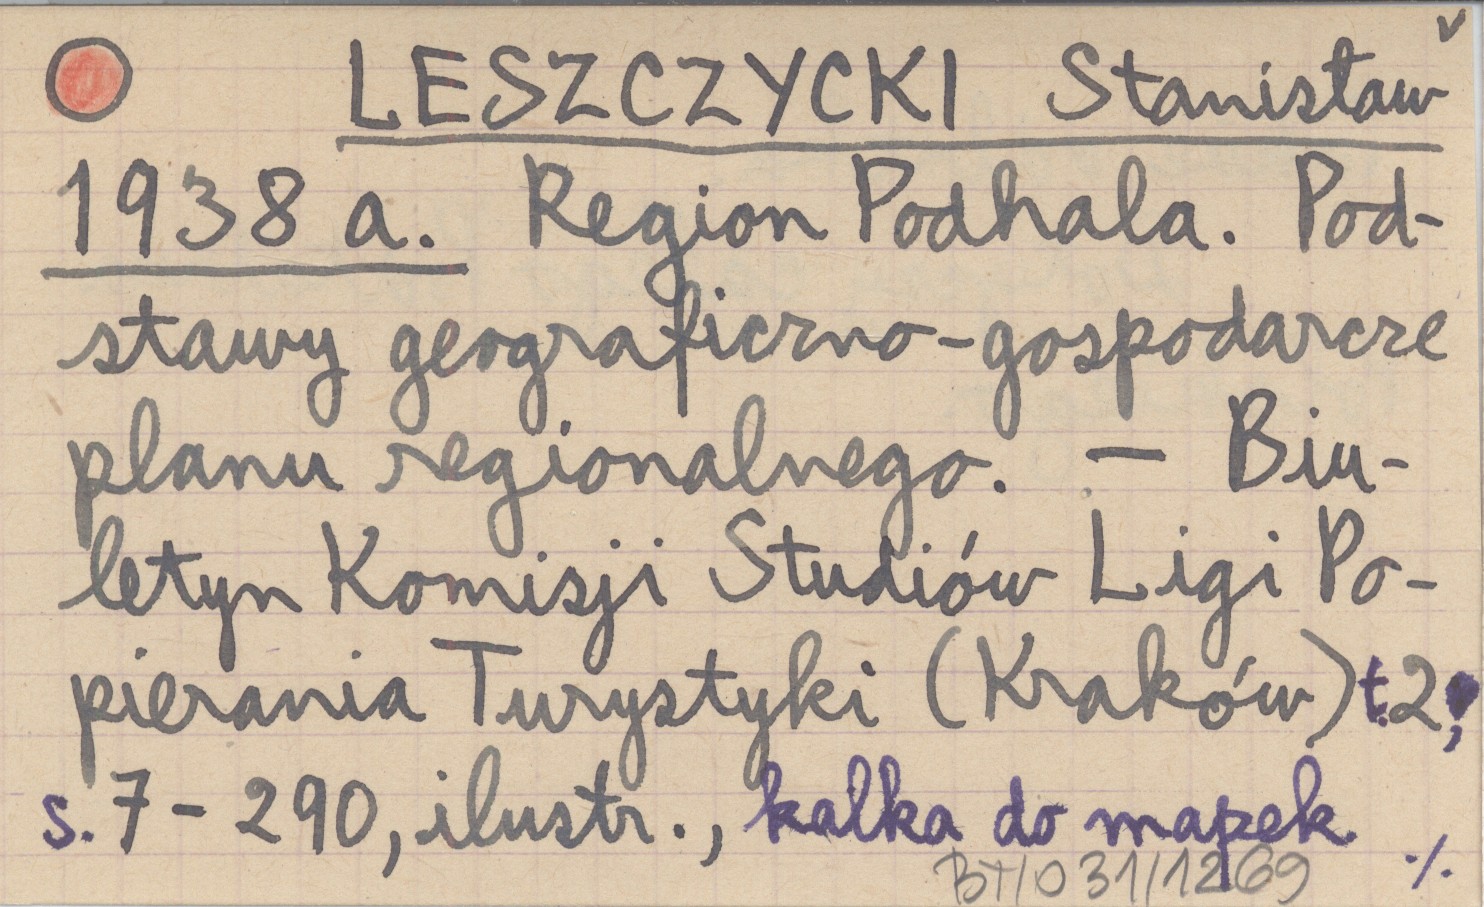 LESZCZYCKI Stanisław
1938 a. Region Podhala. Pod-
stawy geograficzno-gospodarcze
planu regionalnego. — Biu-
letyn Komisji Studiów Ligi Po-
pierania Turystyki (Kraków) t. 2;
s. 7-290, ilustr., kalka do mapek.
BT/031/1269 ./.